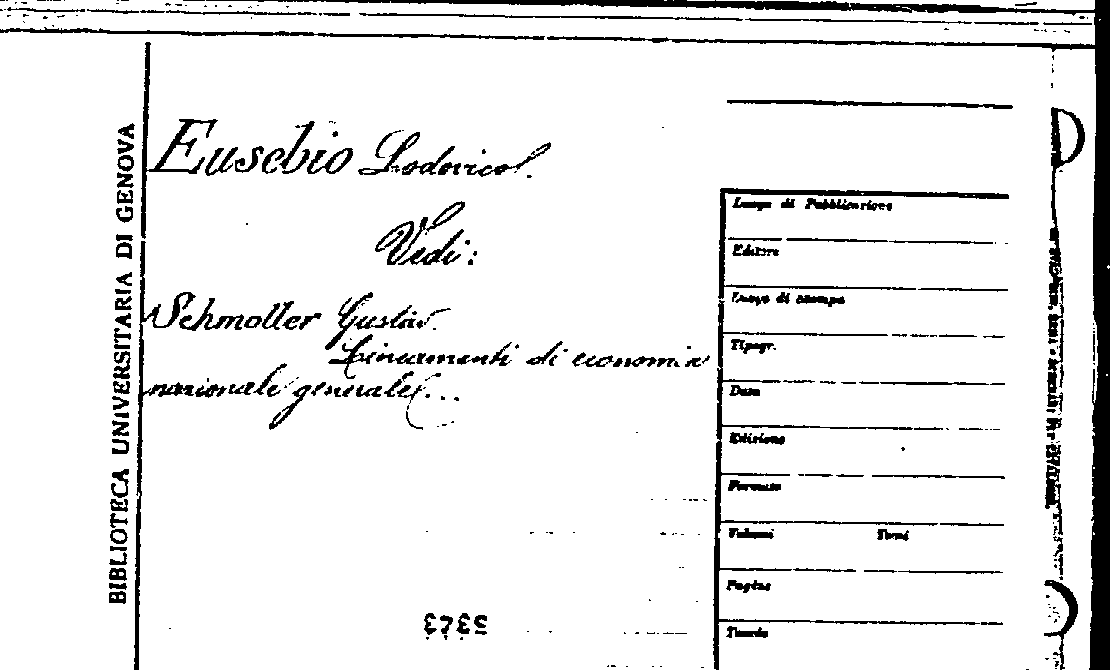 BIBLIOTECA UNIVERSITARIA DI GENOVA
Eusebio Lodovico.
Vedi:
Schmoller Gustav.
Lineamenti di economia
nazionale generale...
Luogo di Pubblicazione
Editore
Luogo di stampa
Tipogr.
Data
Edizione
Formato
Volumi Tomi
Pagine
5373